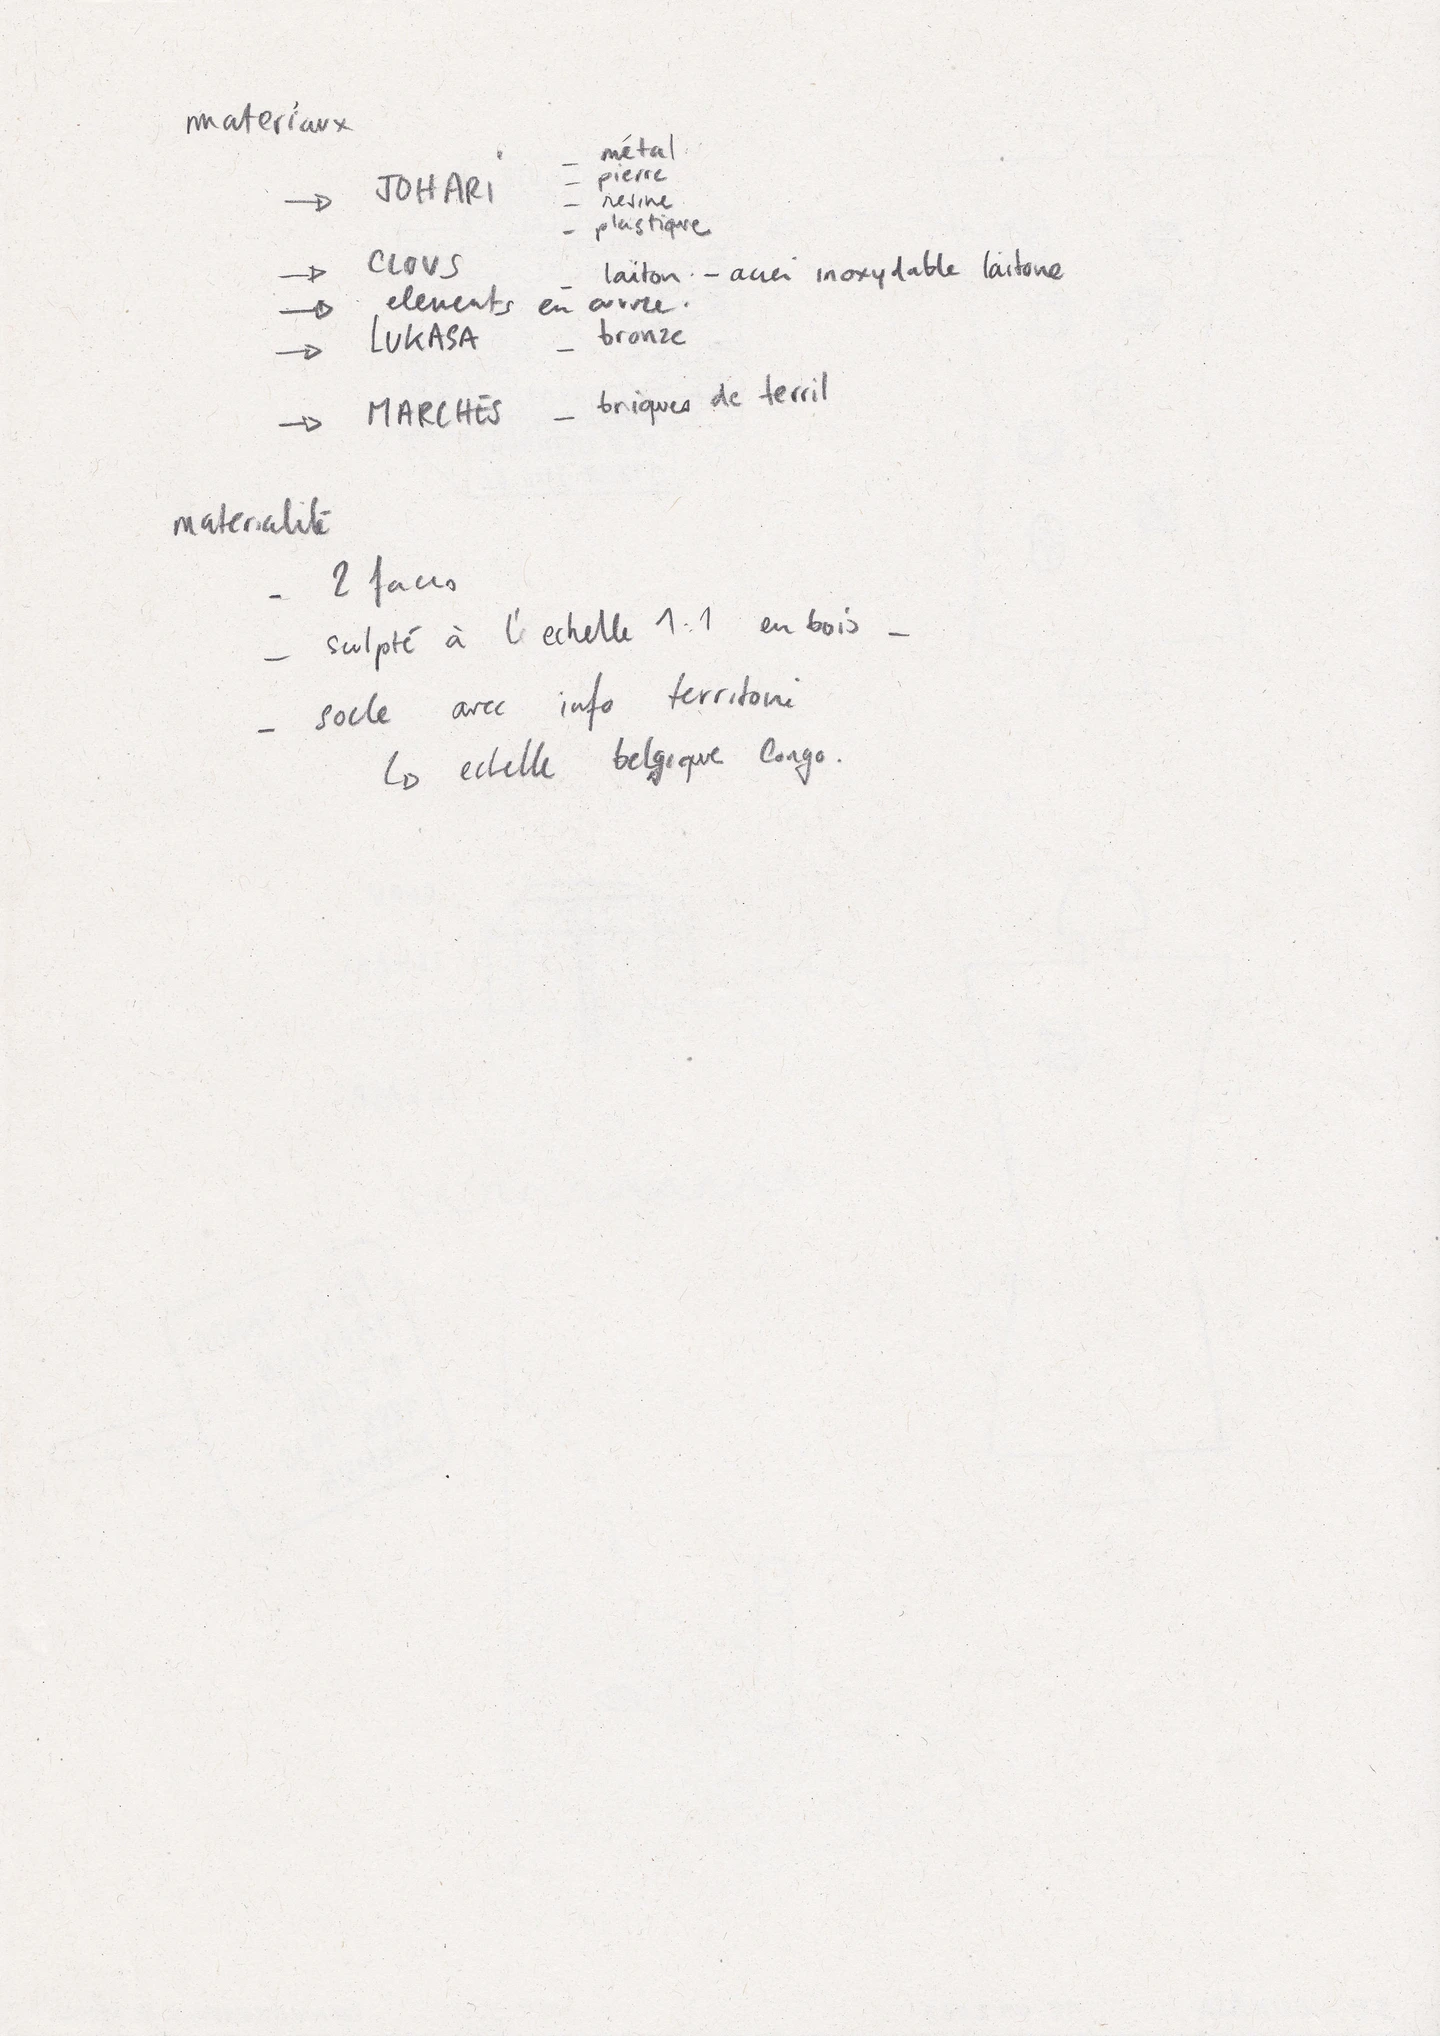 materiaux
→ JOHARI – métal
– pierre
– resine
– plastique
→ CLOUS – laiton. – acier inoxydable laitone
→ elements en cuivre.
→ LUKASA – bronze
→ MARCHES – briques de terril
materialité
– 2 faces
– sculpté à l'echelle 1:1 en bois –
– socle avec info territoire
↳ echelle belgique Congo.